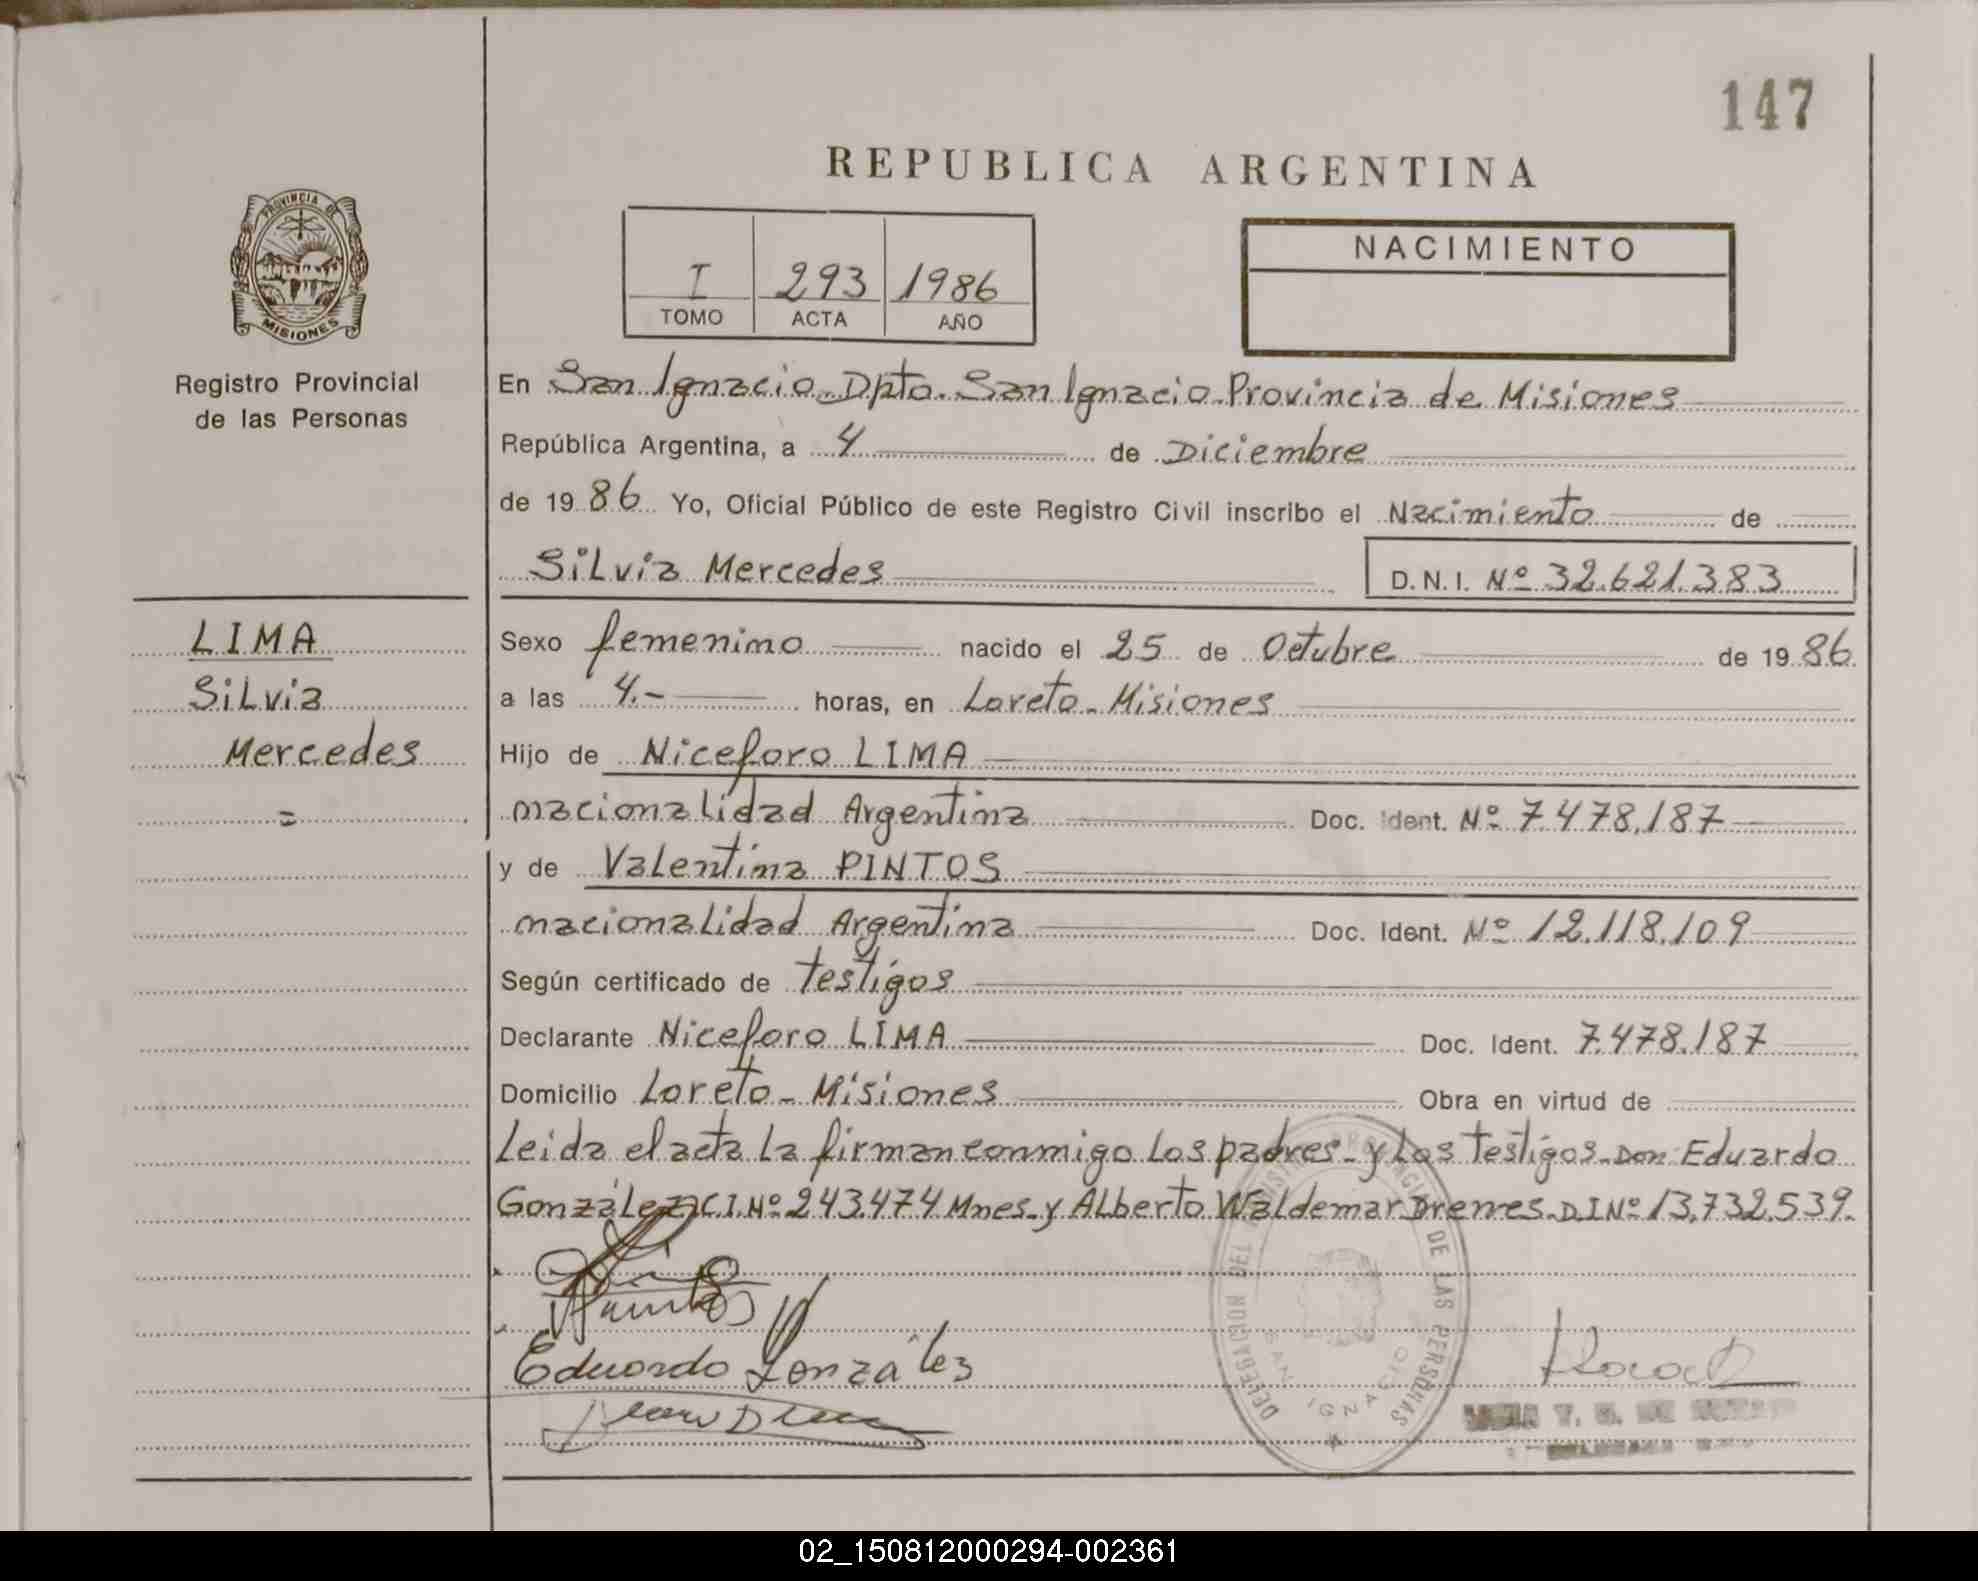 147
REPUBLICA ARGENTINA
PROVINCIA DE
MISIONES
Registro Provincial
de las Personas
I 293 1986
TOMO ACTA AÑO
NACIMIENTO
En San Ignacio - Dpto. San Ignacio - Provincia de Misiones
República Argentina, a 4 de Diciembre
de 1986 Yo, Oficial Público de este Registro Civil inscribo el Nacimiento de
Silvia Mercedes D.N.I. Nº 32.621.383
LIMA
Silvia
Mercedes
=
Sexo femenino nacido el 25 de Octubre de 1986
a las 4.- horas, en Loreto - Misiones
Hijo de Niceforo LIMA
nacionalidad Argentina Doc. Ident. Nº 7.478.187
y de Valentina PINTOS
nacionalidad Argentina Doc. Ident. Nº 12.118.109
Según certificado de testigos
Declarante Niceforo LIMA Doc. Ident. 7.478.187
Domicilio Loreto - Misiones Obra en virtud de
Leida el acta la firman conmigo los padres - y los testigos - Don Eduardo
González C.I. Nº 243.474 Mnes - y Alberto Waldemar Drewes - D.I Nº 13.732.539.
Eduardo González
DELEGACION DEL REGISTRO PROVINCIAL DE LAS PERSONAS
SAN IGNACIO
02_150812000294-002361